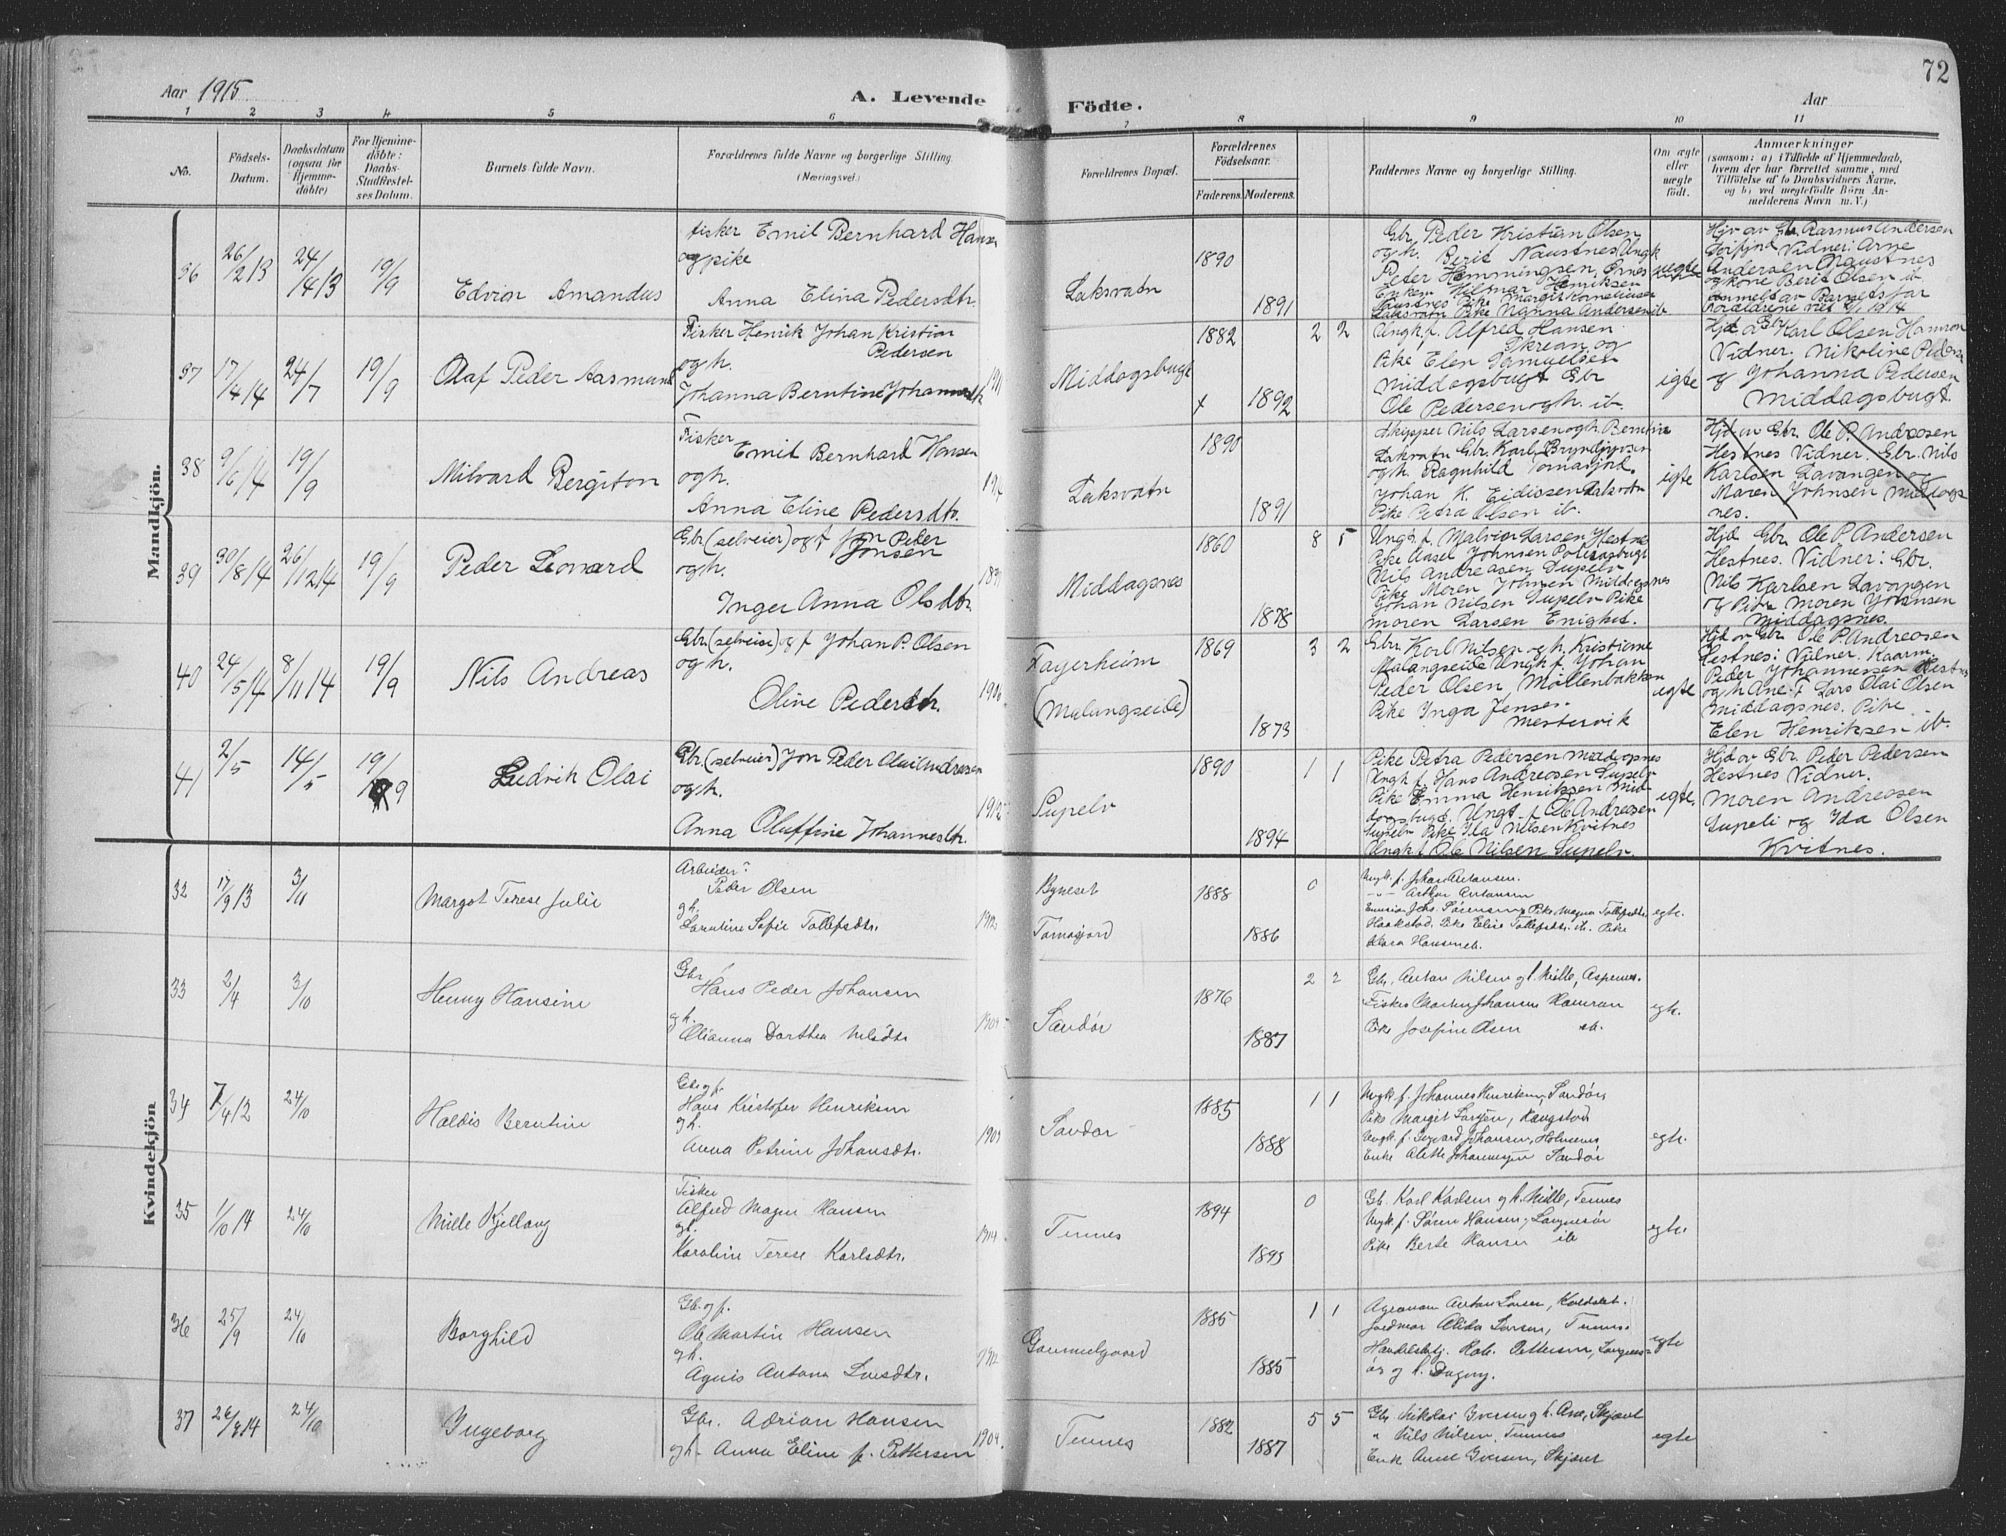 72
Aar 1915
A. Levende Födte.
Aar
1 2 3 4 5 6 7 8 9 10 11
No.
Födsels-
Datum.
Daabsdatum
(ogsaa for
Hjemme-
döbte)
For Hjemme-
döbte:
Daabs-
Stadfæstel-
ses Datum.
Barnets fulde Navn.
Forældrenes fulde Navne og borgerlige Stilling.
(Næringsvei.)
Forældrenes Bopæl.
Forældrenes
Födselsaar.
Faderens. Moderens.
Faddernes Navne og borgerlige Stilling.
Om ægte
eller
uægte
födt.
Anmærkninger
(saasom: a) i Tilfælde af Hjemmedaab,
hvem der har forrettet samme, med
Tilföielse af to Daabsvidners Navne,
og b) ved uægtefödte Börn An-
melderens Navn m. V.)
Mandkjön.
36 26/2 13 24/4 13 19/9
Edvin Amandus
fisker Emil Bernhard Hansen
og pike
Anna Elina Pedersdtr
Laksvatn
1890
1891
Gbr Peder Kristian Olsen
og h. Berit Naustnes Ungk
Peter Hemmingsen
Enken Hilmar Henriksen
Naustnes Pike Margit Korneliusen
Laksvatn Pike Nanna Andersen ib
uegte
Hjv av Gbr Rasmus Andersen
Vidner: Arne
Andersen Naustnes
og kone Berit Olsen ib
anmeldt av Barnets far
Forældrene viet 1914
37 17/4 14 24/7 19/9
Olaf Peder Aasmund
Fisker Henrik Johan Kristian
Pedersen
og h.
Johanna Berntine Johannesdtr
Middagsbugt
1882
1892
2 2
Ungk. f. Alfred Hansen
Skrean og
Pike Elen Samuelsen
Middagsbugt Gbr
Ole Pedersen og h. ib.
egte
Hjd a Gbr Karl Olsen Hamran
Vidner. Nikoline Peders
og Johanna Pedersen
Middagsbugt.
38 9/6 14 19/9
Milvard Bergiton
Fisker
Emil Bernhard Hansen
og h.
Anna Eline Pedersdtr.
Laksvatn
1890
1891
Skipper Nils Larsen og h. Berntine
Laksvatn Gbr. Karl Bryndjyvsen
og h. Ragnhild Tomasjord.
Johan K. Eidissen Laksvatn
Pike Petra Olsen ib.
egte
Hjd av Gbr. Ole P. Andreosen
Hestnes Vidner. Gbr. Nils
Karlsen Lavangen og
Maren Johnsen Middags
nes.
39 30/8 14 26/12 14 19/9
Peder Leonard
Gbr (selveier) og f Jon Peter
Jonsen
og h.
Inger Anna Olsdtr
Middagsnes
1860
1878
8 5
Ungk f. Malvin Larsen Hestnes
Pike Aasel Johnsen
Nils Andreasen Supelv
Pike Moren Johnsen Middagsnes
Johan Nilsen Supelv Pike
Moren Larsen Enighet.
Hjd Gbr Ole P. Andersen
Hestnes. Vidner: Gbr.
Nils Karlsen Lavangen
og Pike Moren Johnsen
Middagsnes.
40 24/5 14 8/11 14 19/9
Nils Andreas
Gbr (selveier) og f Johan P. Olsen
og h.
Oline Pedersdtr.
1906
Fagerheim
(Malangseide)
1869
1873
3 2
Gbr Karl Nilsen og h. Kristiane
Malangseide Ungk f. Johan
Peder Olsen Möllenbakken
Pike Inga Jensen
Mestervik
egte
Hjd av Gbr Ole P. Andreosen
Hestnes: Vidner. Kaarm.
Peder Johannesen Hestnes
og h Ane f Lars Olai Olsen
Middagsnes. Pike
Elen Henriksen ib.
41 2/5 14/5 19/9
Ludvik Olai
Gbr. (selveier) Jon Peder Olai Andreasen
og h.
Anna Oluffine Johannesdtr.
1912
Supelv
1890
1894
1 1
Pike Petra Pedersen Middagsnes
Ungk f. Hans Andreosen Supelv
Pike Emma Henriksen Mid
dagsbugt. Ungk. f. Ole Andreosen
Supelv Pike Ida Nilsen Kvitnes
Ungk f Ole Nilsen Supelv.
egte.
Hjd av Gbr Peder Pedersen
Hestnes Vidner.
Moren Andreosen
Supelv og Ida Olsen
Kvitnes.
Kvindekjön
32 17/9 13 3/11
Margot Terese Julie
Arbeider:
Peder Olsen
g h.
Karoline Sofie Tollefsdtr.
1912
Byneset
Tomasjord
1888
1886
0
Ungk. f. Johan Antonsen.
Arthur Antonsen
Pike Magna Tollefsdtr.
Haakstad. Pike Elise Tollefsdtr. ib. Pike
Klara Hansen ib.
egte.
33 2/4 3/10
Henny Hansine
Gbr
Hans Peder Johansen
g h.
Olianna Dorthea Nilsdtr
Sandör
1876
1887
2 2
Gbr. Anton Nilsen g h. Milla, Aspenes.
Fisker Martin Johansen Hamran
Pike Josefine Olsen ib.
egte.
34 7/4 12 24/10
Haldis Berntine
Gbr og f.
Hans Kristofer Henriksen
g h.
Anna Petrine Johansdtr.
1909
Sandör
1885
1888
1 1
Ungk f. Johannes Henriksen, Sandör,
Pike Margit Larsen,
Ungk f. Johansen, Holmenes
Enke Alette Johannesen Sandör
egte.
35 1/10 14 24/10
Mille Kjellaug
Fisker
Alfred Magnus Hansen
g h.
Karoline Terese Karlsdtr.
1914
Tennes
1894
1893
0
Gb. Karl Karlsen og h. Mille, Tennes
Ungk f. Sören Hansen, Langnesör
Pike Berte Hansen ib
egte.
36 25/9 24/10
Borghild
Gb. og f.
Ole Martin Hansen
g h.
Agnes Antona Larsdtr.
1912
Gammelgaard
1885
1885
1 1
Agronom Anton Larsen,
Jordmor Alida Larsen, Tennes.
Handelsbtj. Rob. Pettersen, Langnes-
ör og h. Dagny.
egte
37 26/8 14 24/10
Ingeborg
Gbr. Adrian Hansen
g h. Anna Eline f. Pettersen
1904.
Tennes
1882
1887
5 5
Gbr Nikolai Iversen g h. Ane, Skjæret
" Nils Nilsen, Tennes
Enk Anne Iversen, Skjæret
egte